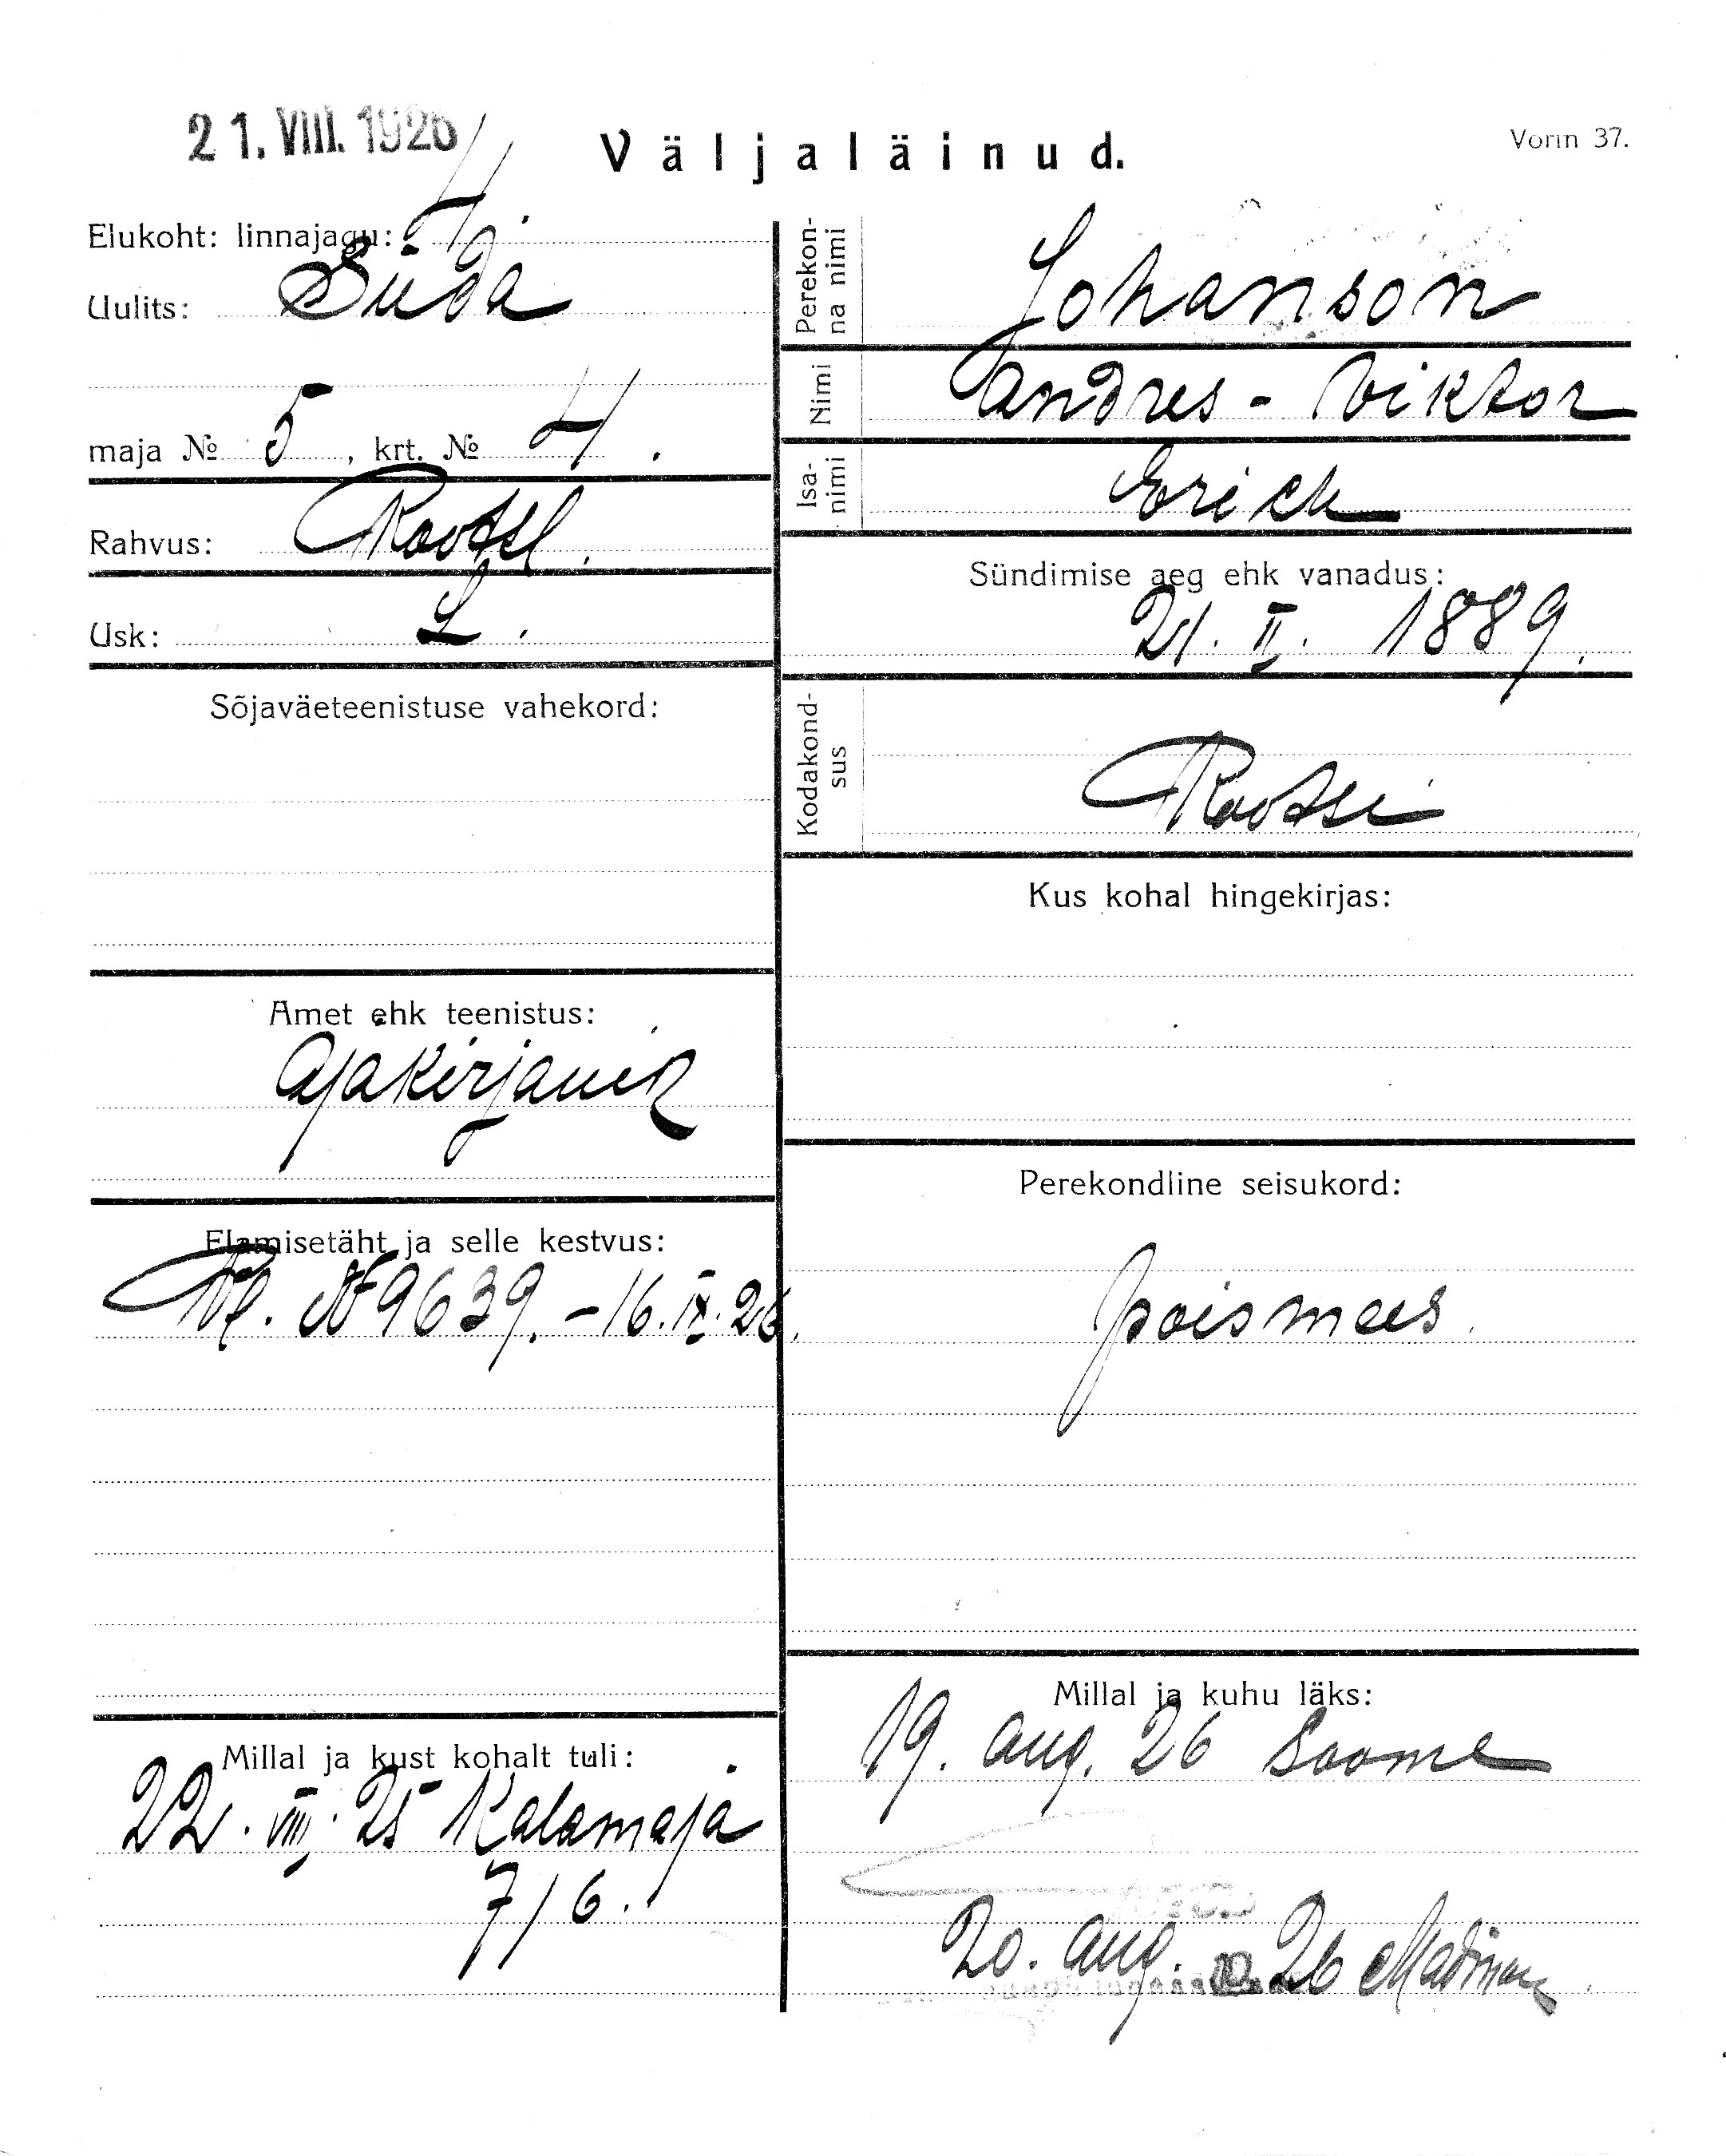 21. VIII. 1926
Väljaläinud.
Vorm 37.
Elukoht: linnajagu: 4
Uulits: Süda
maja № 5, krt. № 4.
Rahvus: Rootsl.
Usk: L.
Sõjaväeteenistuse vahekord:
Amet ehk teenistus:
Ajakirjanik
Elamisetäht ja selle kestvus:
№ 9639. – 16. IX. 26.
Millal ja kust kohalt tuli:
22. VIII. 25 Kalamaja
7/6.
Perekon-
na nimi
Johanson
Nimi
Andres - Viktor
Isa-
nimi
Erich
Sündimise aeg ehk vanadus:
21. II. 1889.
Kodakond-
sus
Rootsi
Kus kohal hingekirjas:
Perekondline seisukord:
poismees.
Millal ja kuhu läks:
19. aug. 26 Soome
20. aug. 26